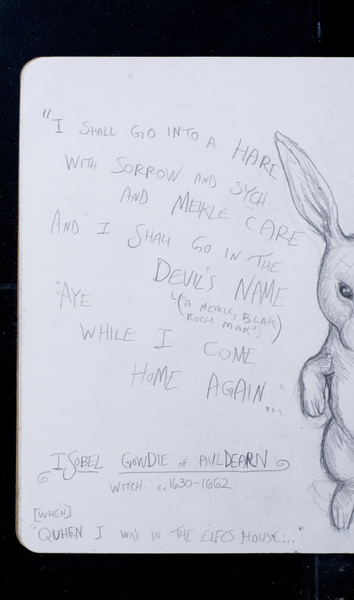 "I SHALL GO INTO A HARE
WITH SORROW AND SYCH
AND MEIKLE CARE
AND I SHALL GO IN THE
DEVIL'S NAME
("A MEIKLE, BLAK,
ROCH MAN",)
'AYE
WHILE I COME
HOME AGAIN..."
ISOBEL GOWDIE OF AULDEARN
WITCH. c.1630-1662
[WHEN]
"QUHEN I WAS IN THE ELFES HOUSE..."